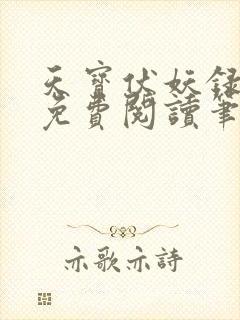 天寶伏妖錄
免費閱讀筆
亦歌亦詩